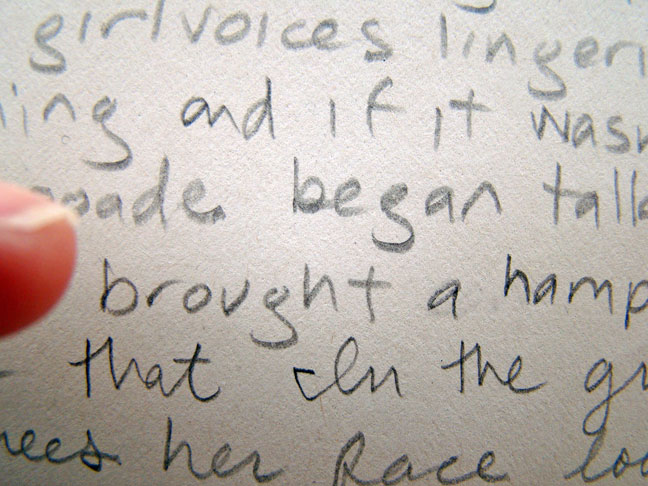 girlvoices lingeri
ning and if it wasn
oade. began talk
brought a hamp
that In the gr
nees her face loo